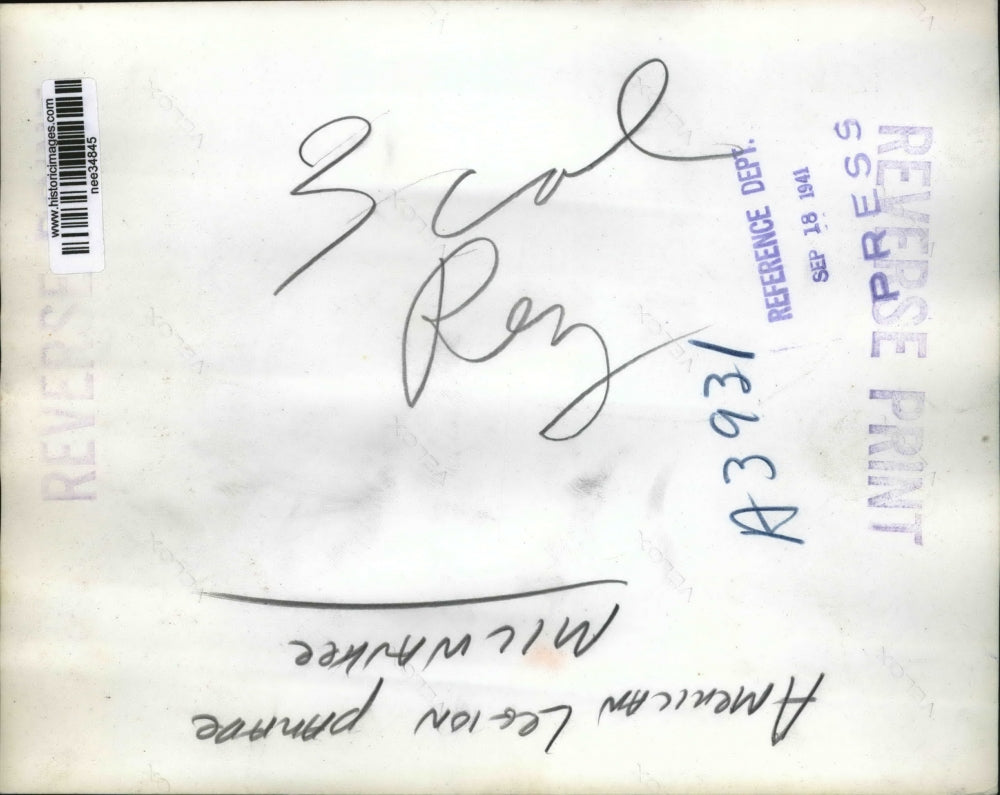 www.historicimages.com
nee34845
3 col
Reg
REFERENCE DEPT.
SEP 18 1941
PRESS
REVERSE PRINT
REVERSE PRINT
A3931
AMERICAN LEGION PARADE
MILWAUKEE
VELOX